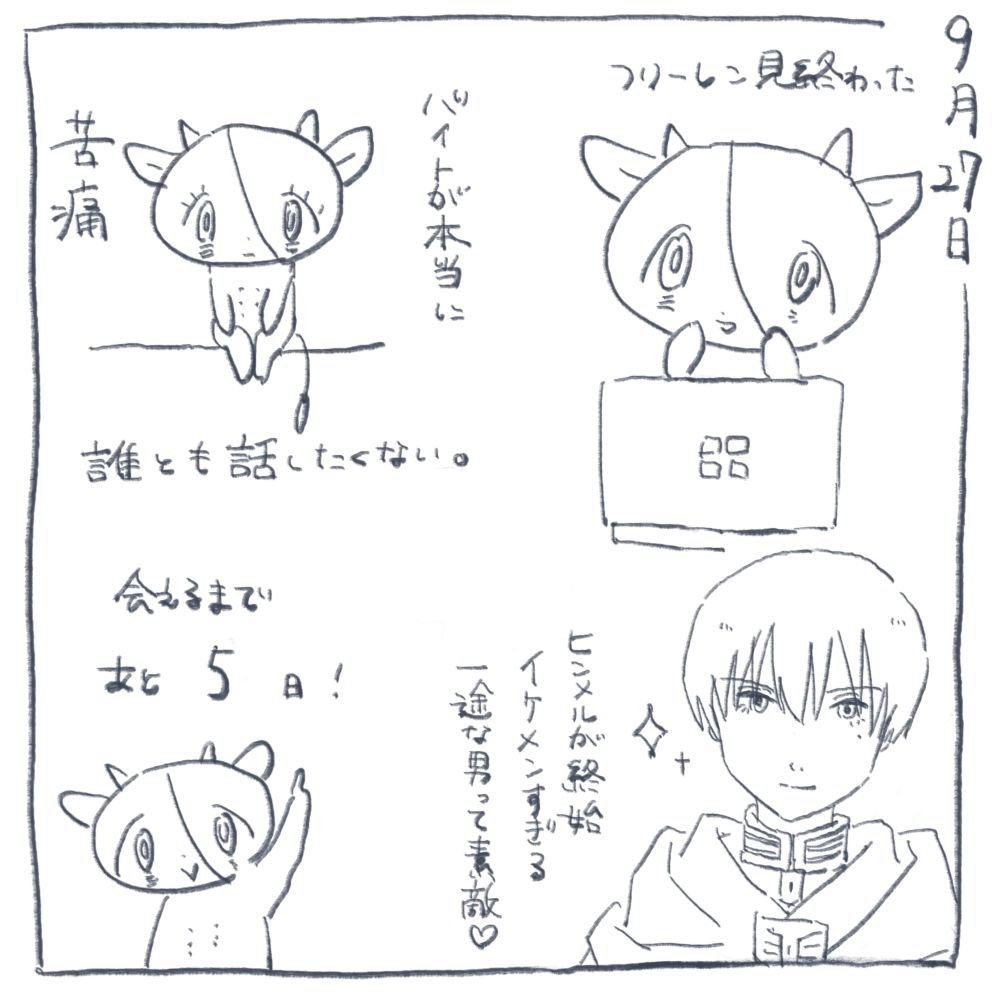 9月27日
フリーレン見終わった
ヒンメルが終始
イケメンすぎる
一途な男って素敵♡
バイトが本当に
苦痛
誰とも話したくない。
会えるまで
あと 5 日!